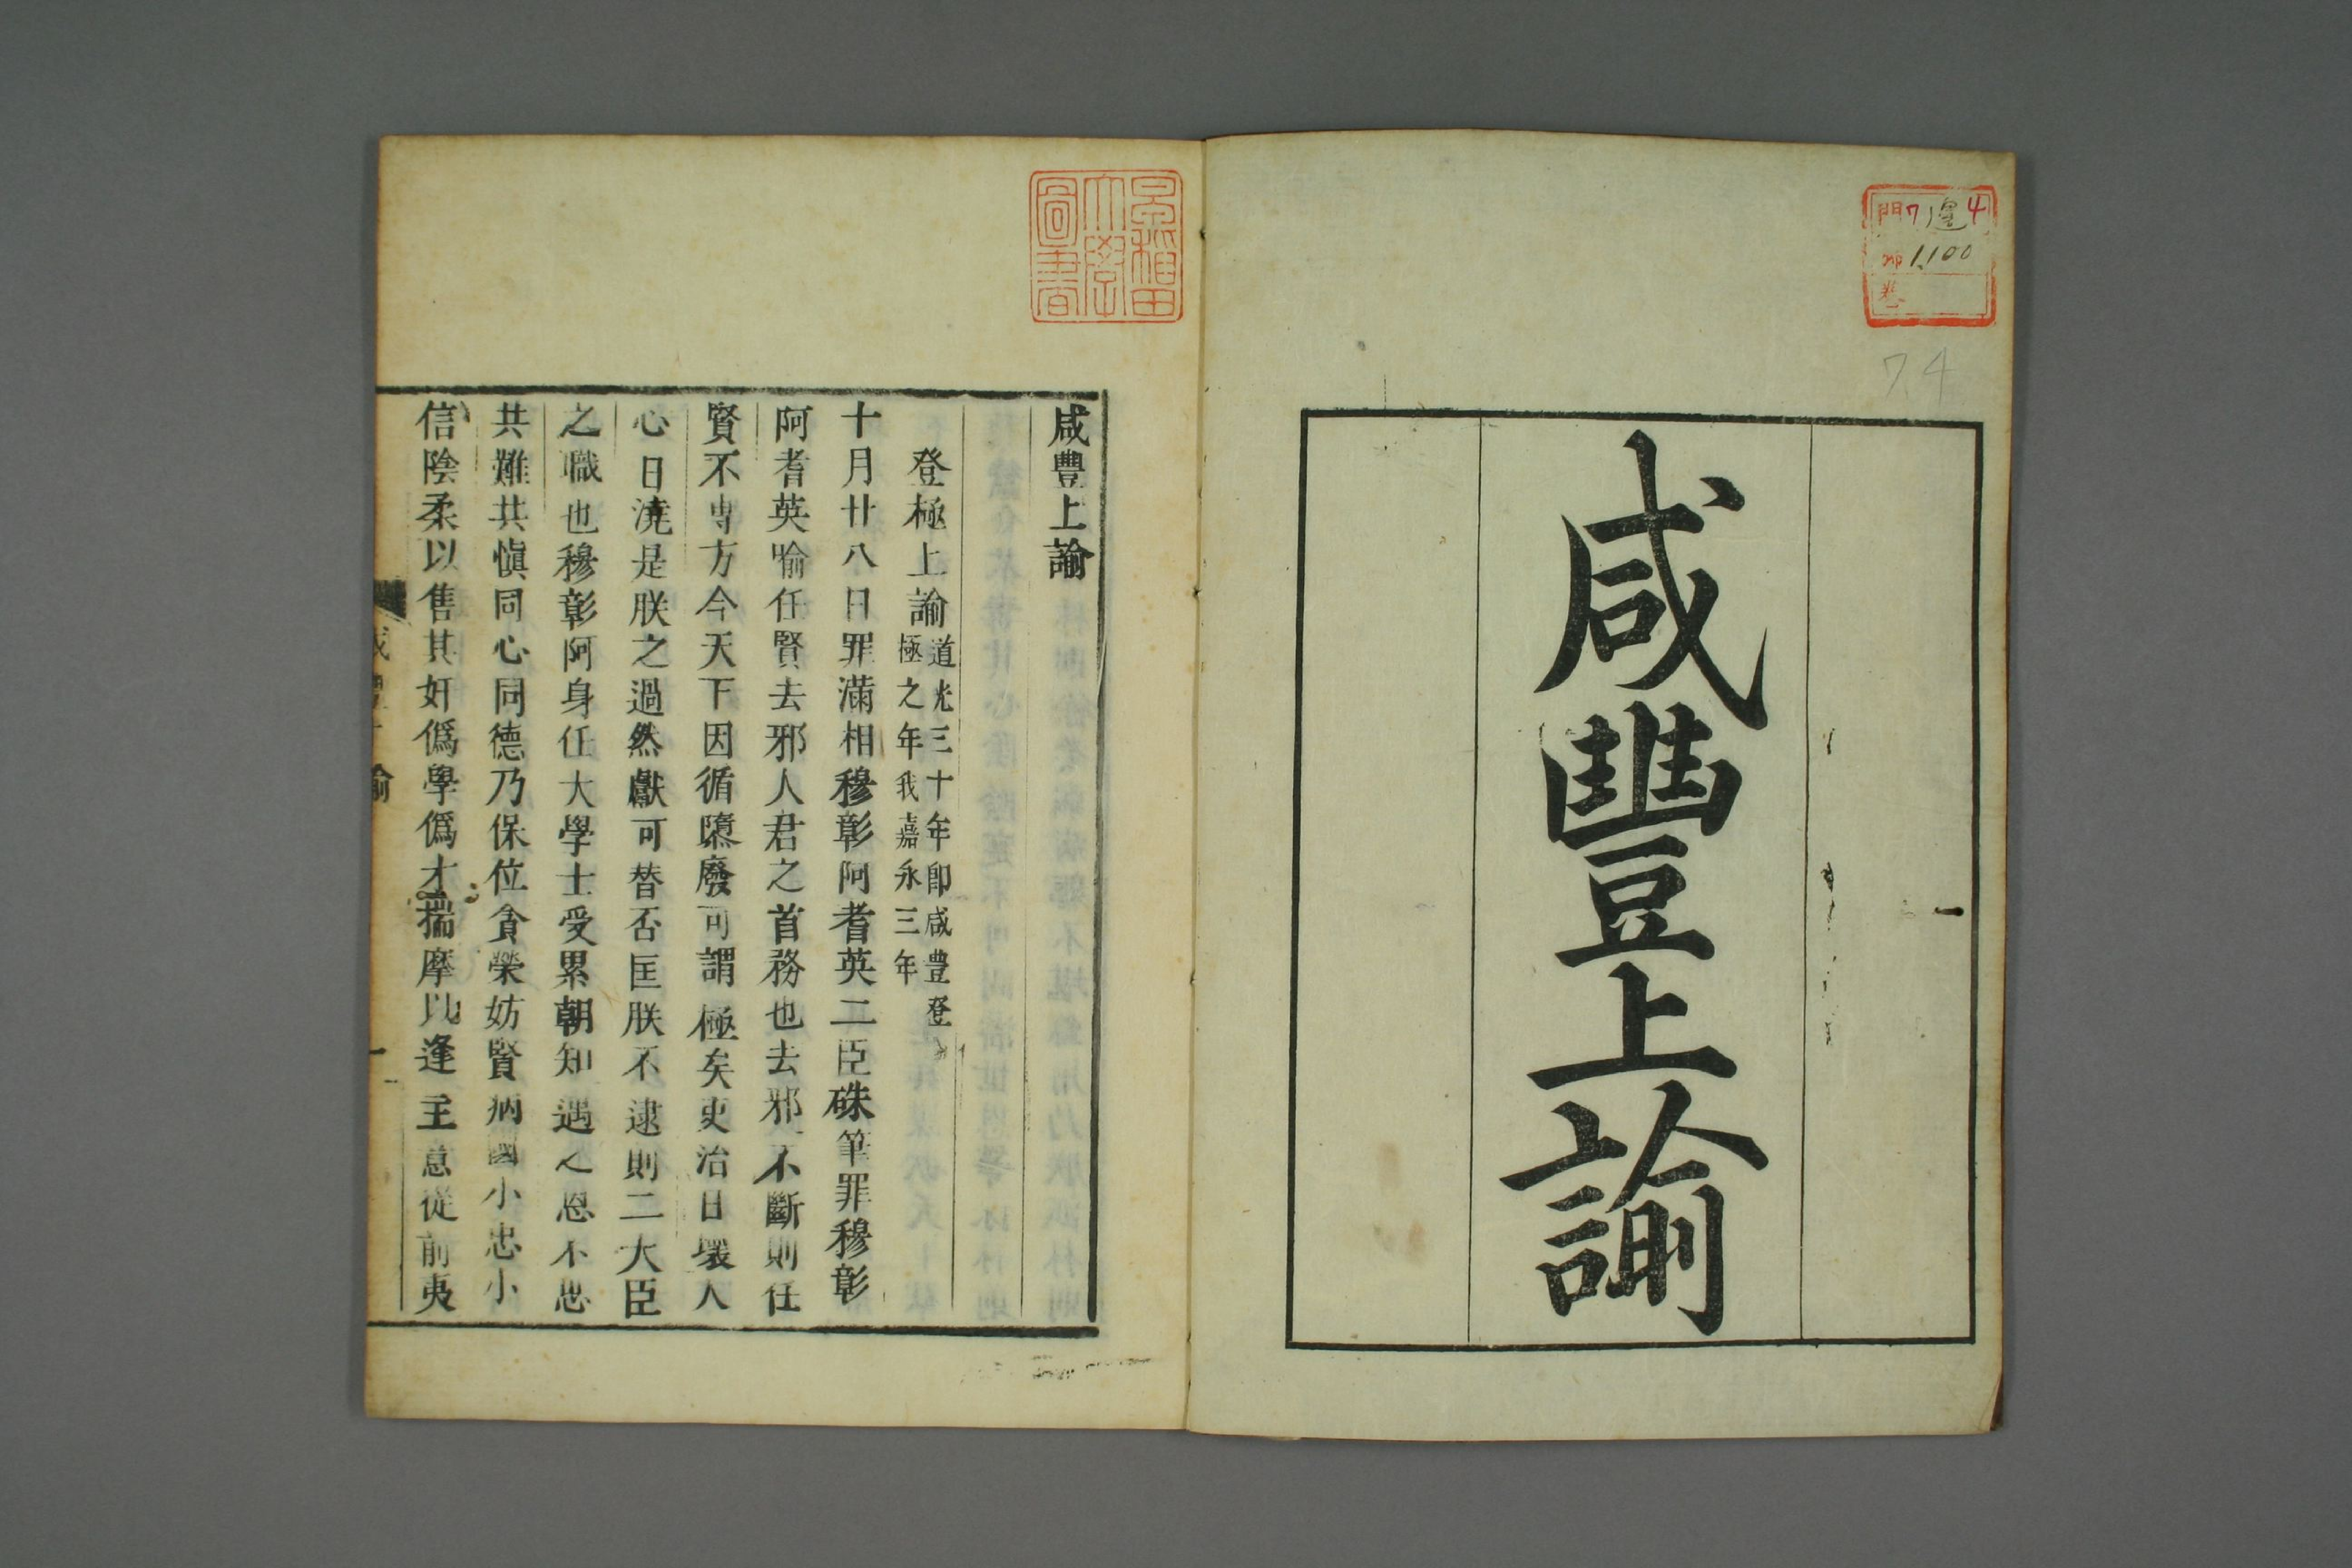 咸豐上諭
門7 邊 4
1,100
卷
7.4
早稲田
大學
圖書
咸豐上諭
登極上諭
道光三十年卽咸豊登
極之年我嘉永三年
十月廿八日罪滿相穆彰阿耆英二臣硃筆罪穆彰
阿耆英喻任賢去邪人君之首務也去邪不斷則任
賢不専方今天下因循隳廢可謂極矣吏治日壞人
心日澆是朕之過然獻可替否匡朕不逮則二大臣
之職也穆彰阿身任大學士受累朝知遇之恩不思
共難共愼同心同德乃保位貪榮妨賢病國小忠小
信陰柔以售其奸僞學僞才揣摩以逢主意從前夷